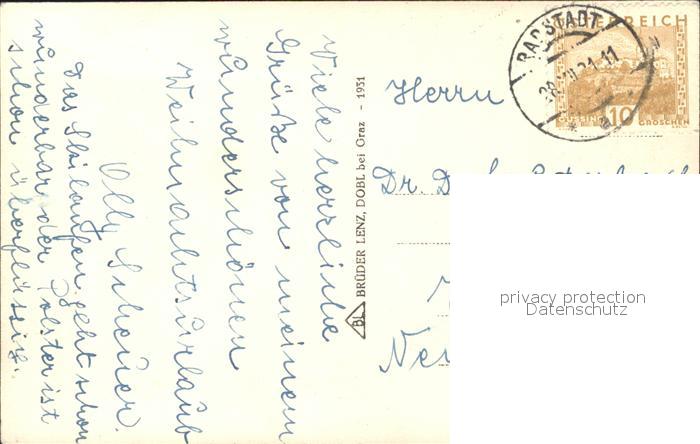 Viele herzliche
Grüße von meinem
wunderschönen
Weihnachtsurlaub
Olly Scheuer.
Das Skilaufen geht schon
wunderbar, der Polster ist
schon überflüssig.
BL BRÜDER LENZ, DOBL bei Graz - 1931
RADSTADT
ÖSTERREICH
GÜSSING 10 GROSCHEN
Herrn
Dr.
privacy protection
Datenschutz